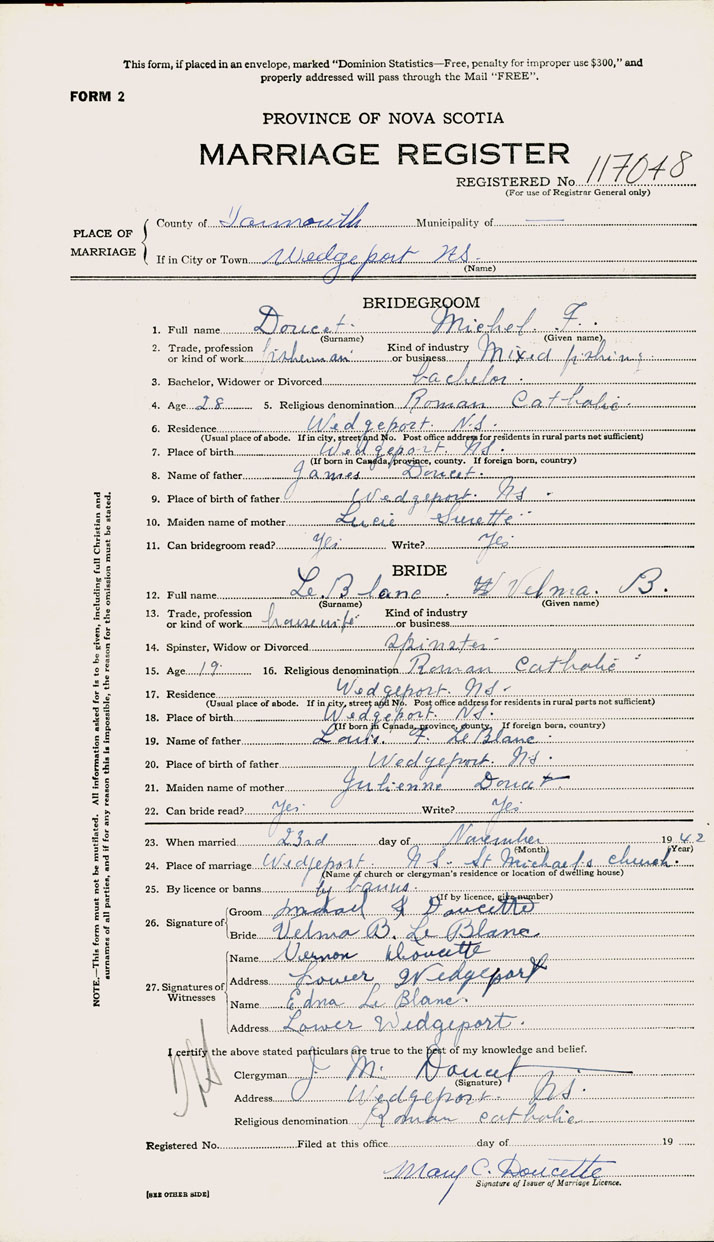 This form, if placed in an envelope, marked "Dominion Statistics—Free, penalty for improper use $300," and
properly addressed will pass through the Mail "FREE".
FORM 2
PROVINCE OF NOVA SCOTIA
MARRIAGE REGISTER
REGISTERED No. 117048
(For use of Registrar General only)
PLACE OF MARRIAGE
County of Yarmouth Municipality of —
If in City or Town Wedgeport NS.
(Name)
BRIDEGROOM
1. Full name Doucet Michel F.
(Surname) (Given name)
2. Trade, profession or kind of work fisherman Kind of industry or business Mixed fishing
3. Bachelor, Widower or Divorced bachelor
4. Age 28 5. Religious denomination Roman Catholic
6. Residence Wedgeport N.S.
(Usual place of abode. If in city, street and No. Post office address for residents in rural parts not sufficient)
7. Place of birth Wedgeport NS.
(If born in Canada, province, county. If foreign born, country)
8. Name of father James Doucet
9. Place of birth of father Wedgeport NS.
10. Maiden name of mother Lucie Surette
11. Can bridegroom read? Yes Write? Yes
BRIDE
12. Full name Le Blanc Velma B.
(Surname) (Given name)
13. Trade, profession or kind of work housewife Kind of industry or business
14. Spinster, Widow or Divorced spinster
15. Age 19 16. Religious denomination Roman Catholic
17. Residence Wedgeport NS.
(Usual place of abode. If in city, street and No. Post office address for residents in rural parts not sufficient)
18. Place of birth Wedgeport NS.
(If born in Canada, province, county. If foreign born, country)
19. Name of father Louis F. LeBlanc
20. Place of birth of father Wedgeport NS.
21. Maiden name of mother Julienne Doucet
22. Can bride read? Yes Write? Yes
23. When married 23rd day of November 1942
(Month) (Year)
24. Place of marriage Wedgeport NS - St Michael's church.
(Name of church or clergyman's residence or location of dwelling house)
25. By licence or banns by banns
(If by licence, give number)
26. Signature of
Groom Michael F Doucette
Bride Velma B. Le Blanc
27. Signatures of Witnesses
Name Vernon Doucette
Address Lower Wedgeport
Name Edna Le Blanc.
Address Lower Wedgeport.
I certify the above stated particulars are true to the best of my knowledge and belief.
Clergyman J. M. Doucet
(Signature)
Address Wedgeport NS.
Religious denomination Roman catholic
Registered No. Filed at this office day of 19
Mary C. Doucette
Signature of Issuer of Marriage Licence.
[SEE OTHER SIDE]
NOTE.—This form must not be mutilated. All information asked for is to be given, including full Christian and
surnames of all parties, and if for any reason this is impossible, the reason for the omission must be stated.